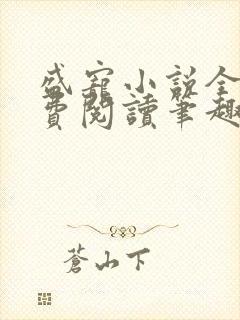 盛寵小說全
費閱讀筆趣
蒼山下